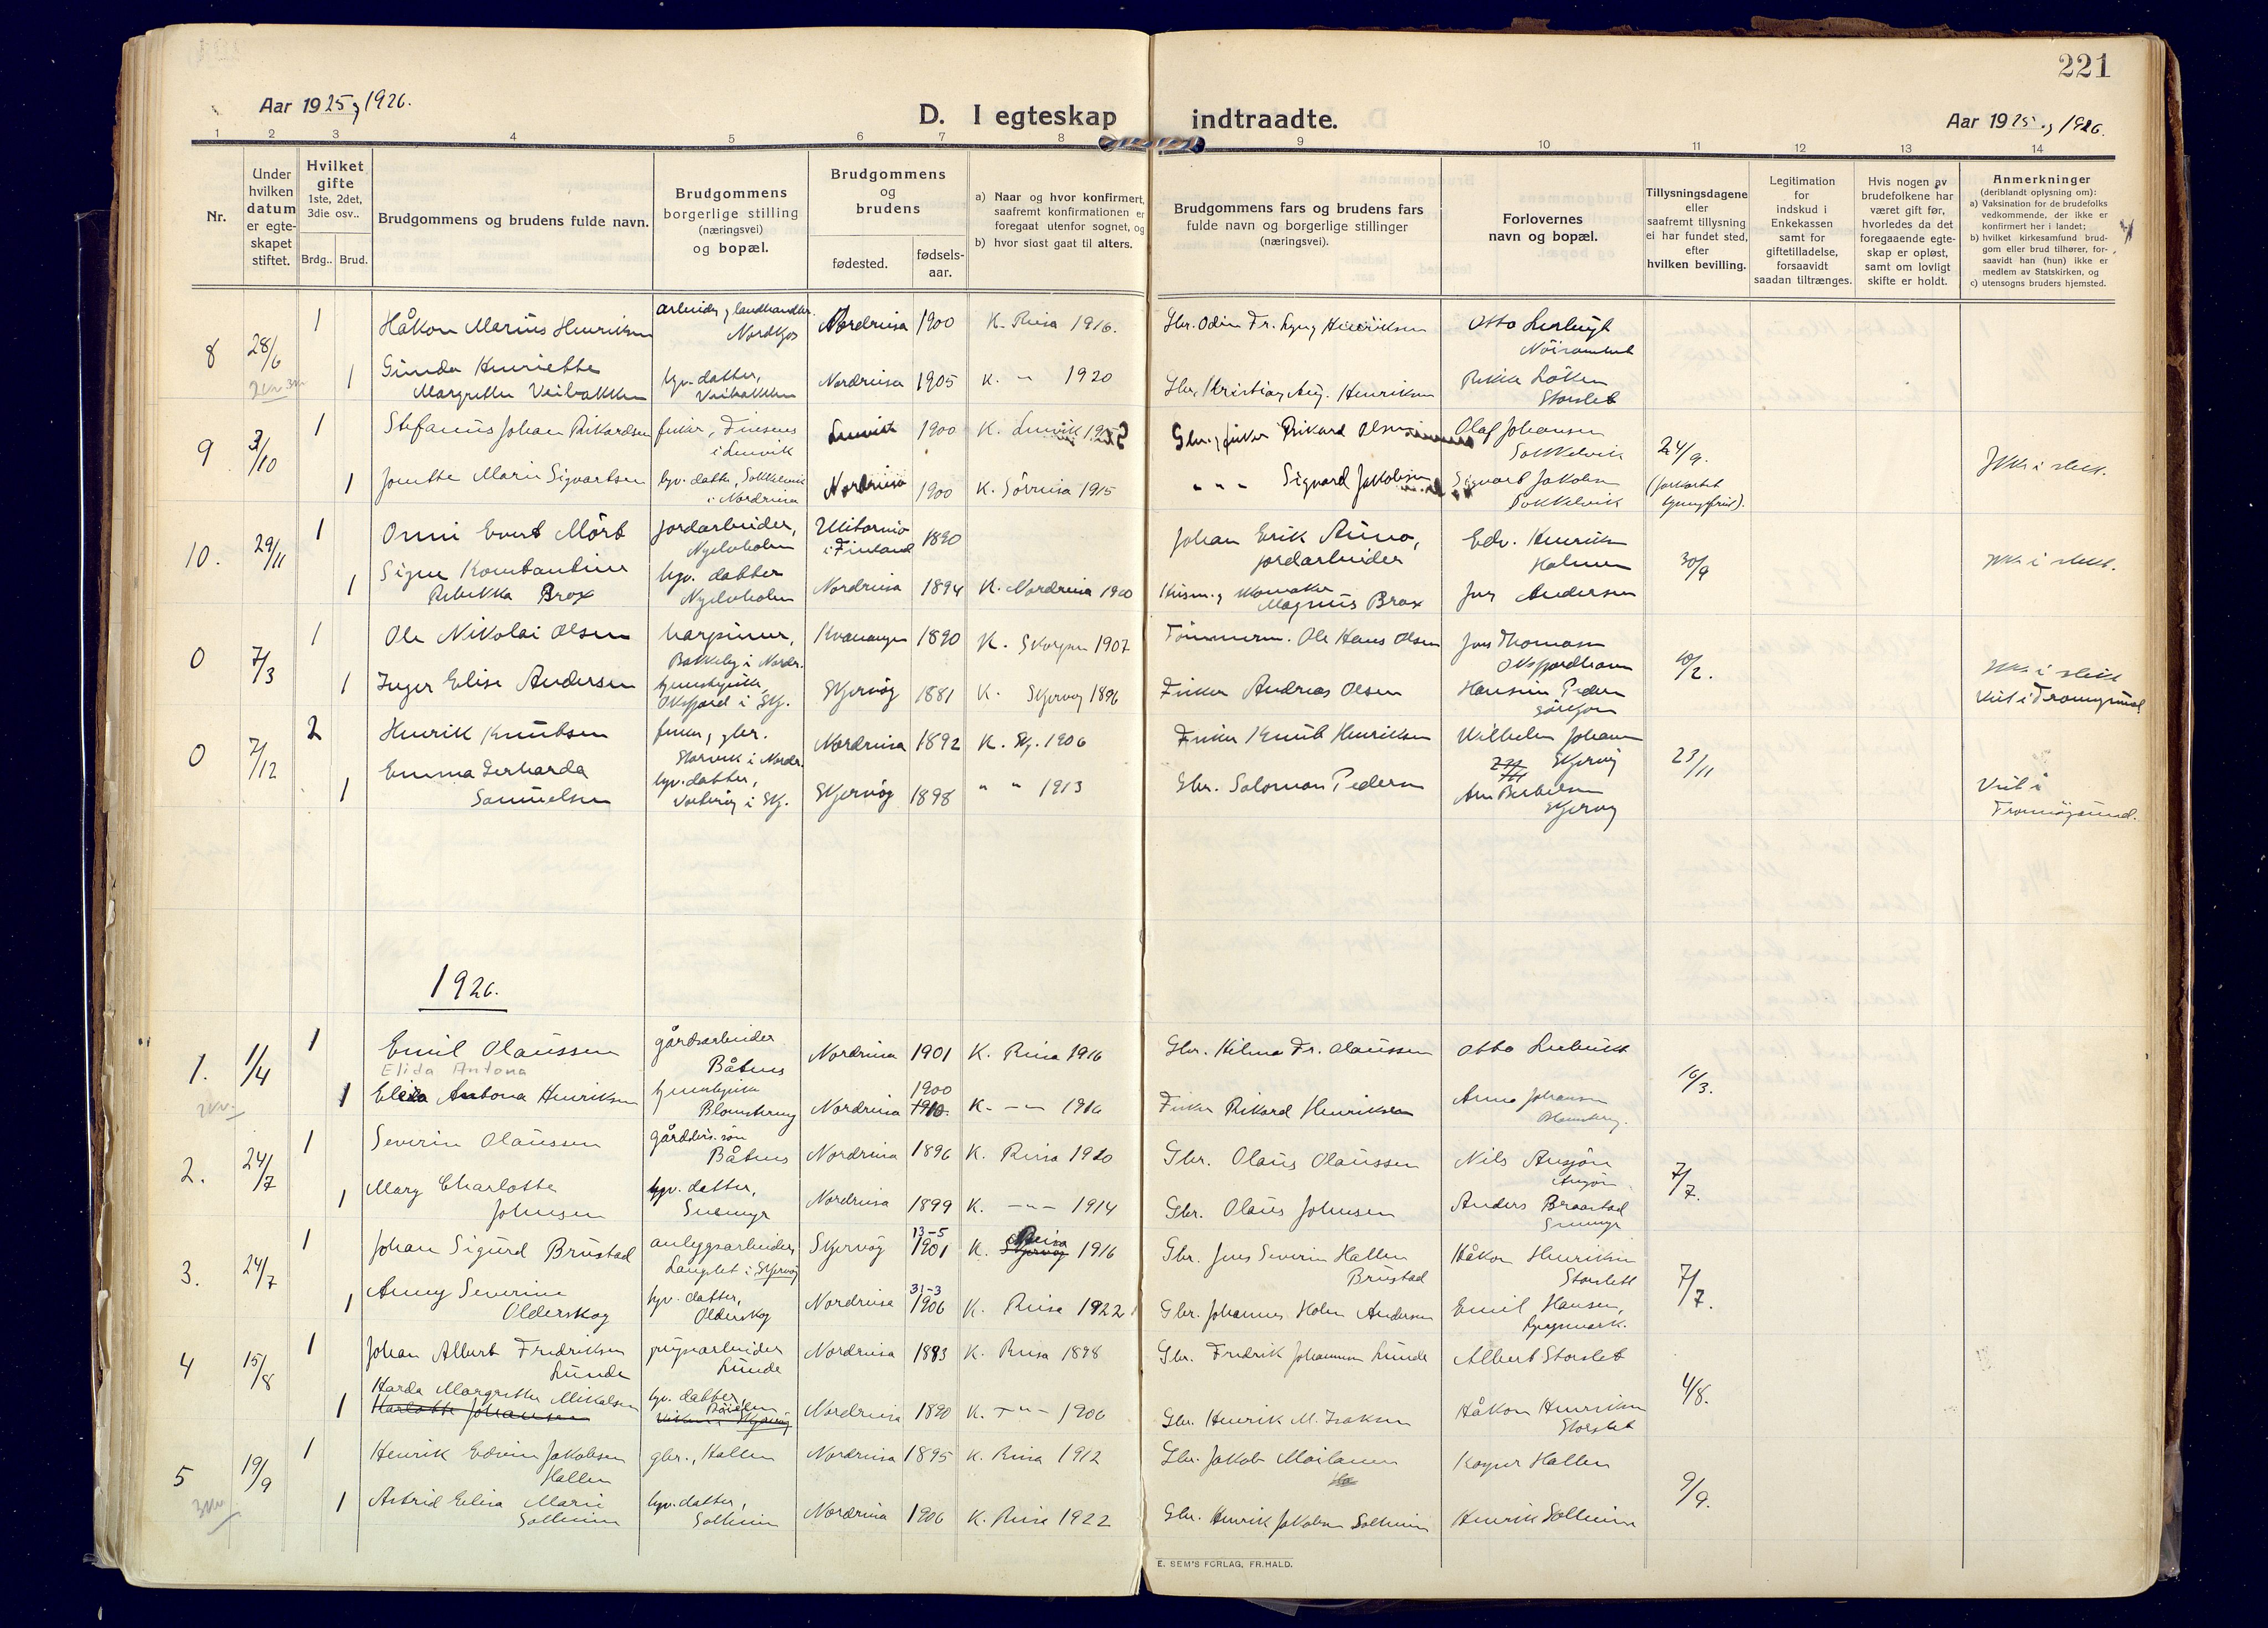 221
Aar 1925 og 1926.
D. I egteskap indtraadte.
Aar 1925 og 1926.
1 2 3 4 5 6 7 8 9 10 11 12 13 14
Nr.
Under hvilken datum er egteskapet stiftet.
Hvilket gifte 1ste, 2det, 3die osv..
Brdg.. Brud.
Brudgommens og brudens fulde navn.
Brudgommens borgerlige stilling (næringsvei) og bopæl.
Brudgommens og brudens
fødested.
fødsels-aar.
a) Naar og hvor konfirmert, saafremt konfirmationen er foregaat utenfor sognet, og
b) hvor sidst gaat til alters.
Brudgommens fars og brudens fars fulde navn og borgerlige stillinger (næringsvei).
Forlovernes navn og bopæl.
Tillysningsdagene eller saafremt tillysning ei har fundet sted, efter hvilken bevilling.
Legitimation for indskud i Enkekassen samt for giftetilladelse, forsaavidt saadan tiltrænges.
Hvis nogen av brudefolkene har været gift før, hvorledes da det foregaaende egteskap er opløst, samt om lovligt skifte er holdt.
Anmerkninger
(deriblandt oplysning om):
a) Vaksination for de brudefolks vedkommende, der ikke er konfirmert her i landet;
b) hvilket kirkesamfund brudgom eller brud tilhører, forsaavidt han (hun) ikke er medlem av Statskirken, og
c) utensogns bruders hjemsted.
8 28/6 1 Håkon Marius Henriksen arbeider, landhandler. Nordkjos Nordreisa 1900 K. Reisa 1916. Gbr. Odin Fr. Lyng Henriksen Otto
1 Gunda Henriette Margrethe Veibakken hjv. datter, Veibakken Nordreisa 1905 K. -"- 1920 Gbr. Kristian Aug. Henriksen Rikka Løken Storslet
9 3/10 1 Stefanus Johan Rikardsen fisker, Finsnes i Lenvik Lenvik 1900 K. Lenvik Gbr. og fisker Rikard Olsen Olaf Johansen Sokkelvik 24/9.
1 Jonette Marie Sigvartsen hjv. datter, Sokkelvik i Nordreisa Nordreisa 1900 K. Sørreisa 1915 " " " Sigvard Jakobsen Sigvart Jakobsen Sokkelvik
10. 29/11 1 Onni Evert Mört jordarbeider, Nyelvholm i Finland 1890 Johan Erik Auno, jordarbeider Edv. Henriksen Holmen 30/9
1 Signe Konstantine Rebekka Brox hjv. datter Nyelvholm Nordreisa 1894 K. Nordreisa 1910 Magnus Brox Jens Andersen
0 7/3 1 Ole Nikolai Olsen Bakkeby i Nordr. Kvænangen 1890 K. Skorpen 1907 Tømmerm. Ole Hans Olsen Jens Thomasen Oksfjordhavn 10/2.
1 Inger Elise Andersen Oksfjord i Skj. Skjervøy 1881 K. Skjervøy 1896 Fisker Andreas Olsen Hansine Pedersen
0 7/12 2 Henrik Knutsen fisker, gbr. Storvik i Nordr. Nordreisa 1892 K. Skj. 1906 Fisker Knut Henriksen Wilhelm Johansen Skjervøy 23/11
1 Emma Gerharda Samuelsen hjv. datter, i Skj. Skjervøy 1898 " " 1913 Gbr. Salomon Pedersen Skjervøy
Viet i Tromsøysund.
1926.
1. 1/4 1 Emil Olaussen gårdsarbeider Båtnes Nordreisa 1901 K. Reisa 1916 Gbr. Hilmar Fr. Olaussen Otto 16/3.
Elida Antona
1 Elida Antona Henriksen Nordreisa 1900 K. -"- 1916 Fisker Rikard Henriksen Anna Johansen
2. 24/7 1 Severin Olaussen Båtnes Nordreisa 1896 K. Reisa 1910 Gbr. Olaus Olaussen Nils 7/7.
1 Mary Charlotte Johnsen hjv. datter, Snemyr Nordreisa 1899 K. -"- 1914 Gbr. Olaus Johnsen Anders Braastad Snemyr
3. 24/7 1 Johan Sigurd Brustad anleggsarbeider, Langslet i Skjervøy Skjervøy 13-5 1901 K. Reisa 1916 Gbr. Jens Severin Hallen Brustad Håkon Henriksen Storslett 7/7.
1 Anny Severine Olderskog hjv. datter, Olderskog Nordreisa 31-3 1906 K. Reisa 1922 Gbr. Johannes Holm Andersen Emil Hansen,
4 15/8 1 Johan Albert Fredriksen Lunde Lunde Nordreisa 1883 K. Reisa 1898 Gbr. Fredrik Johannesen Lunde Albert Storslet 4/8.
1 Harda Margrethe Mikalsen hjv. datter, Nordreisa 1890 K. -"- 1906 Gbr. Henrik M. Isaksen Håkon Henriksen Storslet
5 19/9 1 Henrik Edvin Jakobsen Hallen gbr., Hallen Nordreisa 1895 K. Reisa 1912 Gbr. Jakob Moilanen Hallen 9/9.
1 Astrid Elisa Marie Solheim hjv. datter, Solheim Nordreisa 1906 K. Reisa 1922 Gbr. Henrik Jakobsen Solheim Henrik Solheim
E. SEM'S FORLAG, FR.HALD.